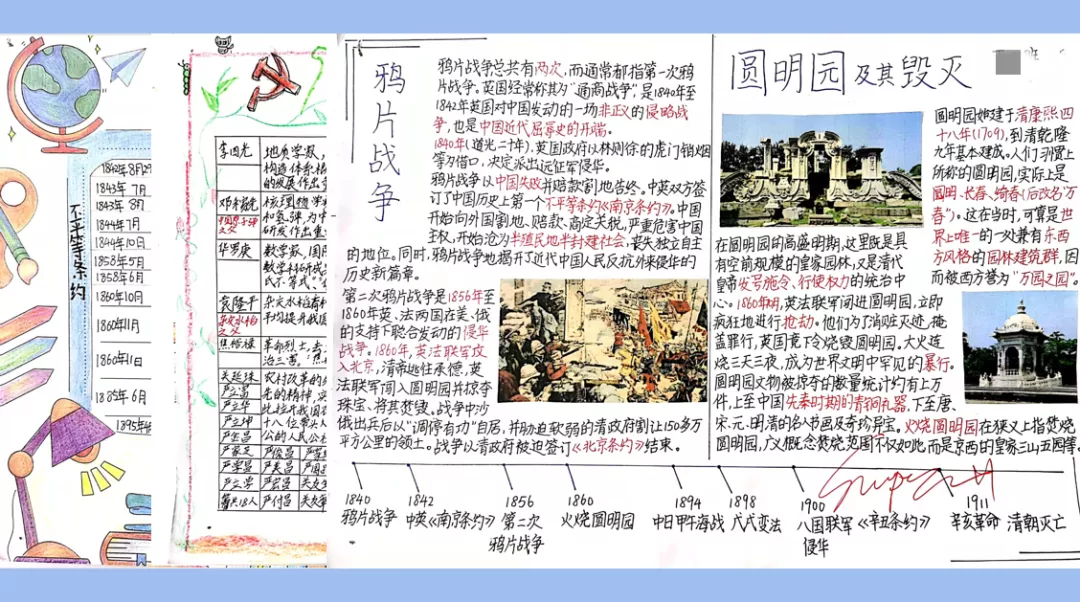 不平等条约
1842年8月29
1843年7月
1843年8月
1844年7月
1844年10月
1858年5月
1858年6月
1860年10月
1860年11月
1885年6月
1895年
李四光 地质学家,
构造体系
的发展作出
邓稼先 核理
和氢弹,为
研发作出重
华罗庚 数学家,
数学科研
袁隆平 杂交水稻
焦裕禄 革命烈士,
吴延珠 农村改革的
严立富
严立华
严立坤 十八位带头人
严金昌
严家芝 严俊昌
严学昌 严美昌
严立学 严宏昌
等共18人 严付昌 关友
鸦片战争
鸦片战争总共有两次,而通常都指第一次鸦
片战争。英国经常称其为“通商战争”是1840年至
1842年英国对中国发动的一场非正义的侵略战
争,也是中国近代屈辱史的开端。
1840年(道光二十年),英国政府以林则徐的虎门销烟
等为借口,决定派出远征军侵华。
鸦片战争以中国失败并赔款割地告终。中英双方签
订了中国历史上第一个不平等条约《南京条约》。中国
开始向外国割地、赔款、商定关税,严重危害中国
主权,开始沦为半殖民地半封建社会,丧失独立自主
的地位。同时,鸦片战争地揭开了近代中国人民反抗外来侵华的
历史新篇章。
第二次鸦片战争是1856年至
1860年英、法两国在美、俄
的支持下联合发动的侵华
战争。1860年,英法联军攻
入北京,清帝逃往承德,英
法联军闯入圆明园并掠夺
珠宝、将其焚毁。战争中沙
俄出兵后以“调停有功”自居,并胁迫软弱的清政府割让150多万
平方公里的领土。战争以清政府被迫签订《北京条约》结束。
圆明园及其毁灭
圆明园始建于清康熙四
十八年(1709),到清乾隆
九年基本建成。人们习惯上
所称的圆明园,实际上是
圆明、长春、绮春(后改名万
春)。这在当时,可算是世
界上唯一的一处兼有东西
方风格的园林建筑群,因
而被西方誉为“万园之园”。
在圆明园的高盛明期,这里既是具
有空前规模的皇家园林,又是清代
皇帝发号施令、行使权力的统治中
心。1860年明,英法联军闯进圆明园,立即
疯狂地进行抢劫。他们为了消赃灭迹,掩
盖罪行,英国竟下令烧毁圆明园。大火连
烧三天三夜,成为世界文明中罕见的暴行。
圆明园文物被掠夺的数量统计约有上万
件,上至中国先秦时期的青铜礼器,下至唐、
宋、元、明、清的名人书画及奇珍异宝。火烧圆明园在狭义上指焚烧
圆明园,广义概念焚烧范围不仅如此,而是京西的皇家三山五园等。
1840
鸦片战争
1842
中英《南京条约》
1856
第二次
鸦片战争
1860
火烧圆明园
1894
中日甲午海战
1898
戊戌变法
1900
八国联军《辛丑条约》
侵华
1911
辛亥革命 清朝灭亡